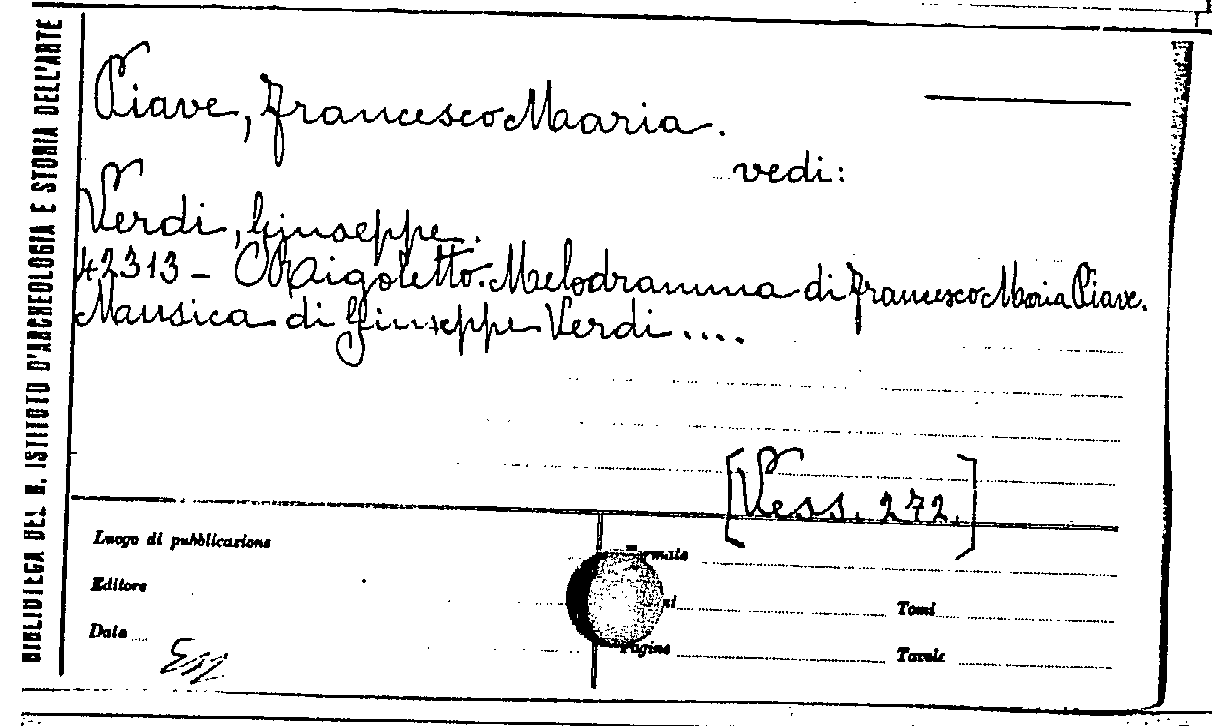 BIBLIOTECA DEL R. ISTITUTO D'ARCHEOLOGIA E STORIA DELL'ARTE
Piave, Francesco Maria.
vedi:
Verdi, Giuseppe.
42313 - Rigoletto. Melodramma di Francesco Maria Piave.
Musica di Giuseppe Verdi ....
[Vess. 272.]
Luogo di pubblicazione
Editore
Tomi
Data
Pagine
Tavole